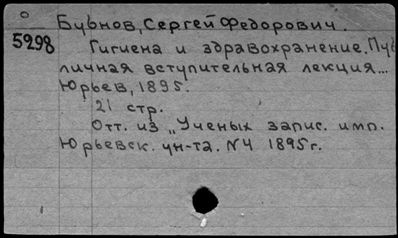 Бубнов, Сергей Федорович.
5298
Гигиена и здравохранение. Пуб
личная вступительная лекция...
Юрьев, 1895.
21 стр.
Отт. из „Ученых запис. имп.
Юрьевск. ун-та. N4 1895 г.